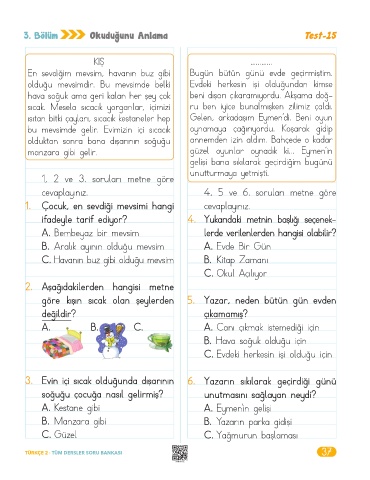 3. Bölüm Okuduğunu Anlama Test-15
KIŞ
En sevdiğim mevsim, havanın buz gibi
olduğu mevsimdir. Bu mevsimde belki
hava soğuk ama geri kalan her şey çok
sıcak. Mesela sıcacık yorganlar, içimizi
ısıtan bitki çayları, sıcacık kestaneler hep
bu mevsimde gelir. Evimizin içi sıcacık
olduktan sonra bana dışarının soğuğu
manzara gibi gelir.
1, 2 ve 3. soruları metne göre
cevaplayınız.
1. Çocuk, en sevdiği mevsimi hangi
ifadeyle tarif ediyor?
A. Bembeyaz bir mevsim
B. Aralık ayının olduğu mevsim
C. Havanın buz gibi olduğu mevsim
2. Aşağıdakilerden hangisi metne
göre kışın sıcak olan şeylerden
değildir?
A. B. C.
3. Evin içi sıcak olduğunda dışarının
soğuğu çocuğa nasıl gelirmiş?
A. Kestane gibi
B. Manzara gibi
C. Güzel
............
Bugün bütün günü evde geçirmiştim.
Evdeki herkesin işi olduğundan kimse
beni dışarı çıkaramıyordu. Akşama doğ-
ru ben iyice bunalmışken zilimiz çaldı.
Gelen, arkadaşım Eymen'di. Beni oyun
oynamaya çağırıyordu. Koşarak gidip
annemden izin aldım. Bahçede o kadar
güzel oyunlar oynadık ki... Eymen'in
gelişi bana sıkılarak geçirdiğim bugünü
unutturmaya yetmişti.
4, 5 ve 6. soruları metne göre
cevaplayınız.
4. Yukarıdaki metnin başlığı seçenek-
lerde verilenlerden hangisi olabilir?
A. Evde Bir Gün
B. Kitap Zamanı
C. Okul Açılıyor
5. Yazar, neden bütün gün evden
çıkamamış?
A. Canı çıkmak istemediği için
B. Hava soğuk olduğu için
C. Evdeki herkesin işi olduğu için
6. Yazarın sıkılarak geçirdiği günü
unutmasını sağlayan neydi?
A. Eymen'in gelişi
B. Yazarın parka gidişi
C. Yağmurun başlaması
TÜRKÇE 2 TÜM DERSLER SORU BANKASI
37